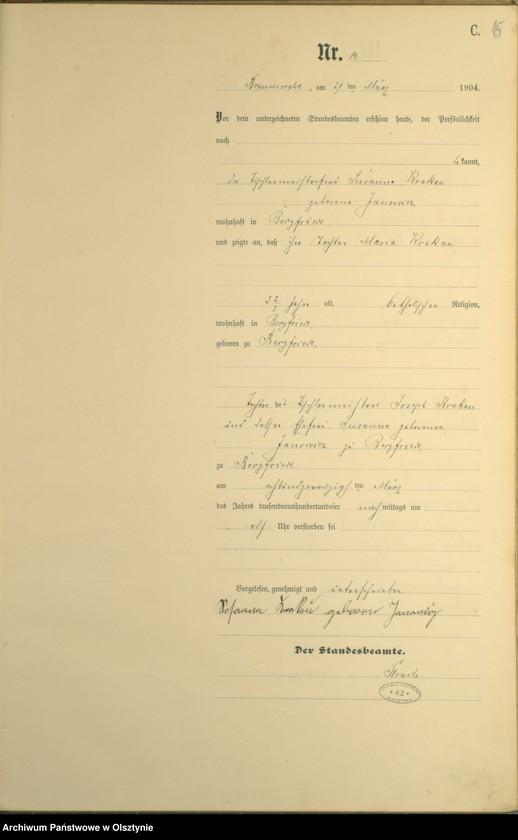 C. 15
Nr. 14
am 29 ten März 1904.
Vor dem unterzeichneten Standesbeamten erschien heute, der Persönlichkeit
nach
bekannt,
die Tischlermeisterfrau Susanna Krekau
geborene Janowicz
wohnhaft in Bergfriede
und zeigte an, daß ihre Tochter Maria Krekau
Jahre alt, katholischer Religion,
wohnhaft in Bergfriede,
geboren zu Bergfriede,
Tochter des Tischlermeisters Joseph Krekau
und dessen Ehefrau Susanna geborene
Janowicz zu Bergfriede,
zu Bergfriede
am achtundzwanzigsten März
des Jahres tausendneunhundertundvier nachmittags um
elf Uhr verstorben sei
Vorgelesen, genehmigt und unterschrieben
Susanna geborene
Der Standesbeamte.
42
Archiwum Państwowe w Olsztynie